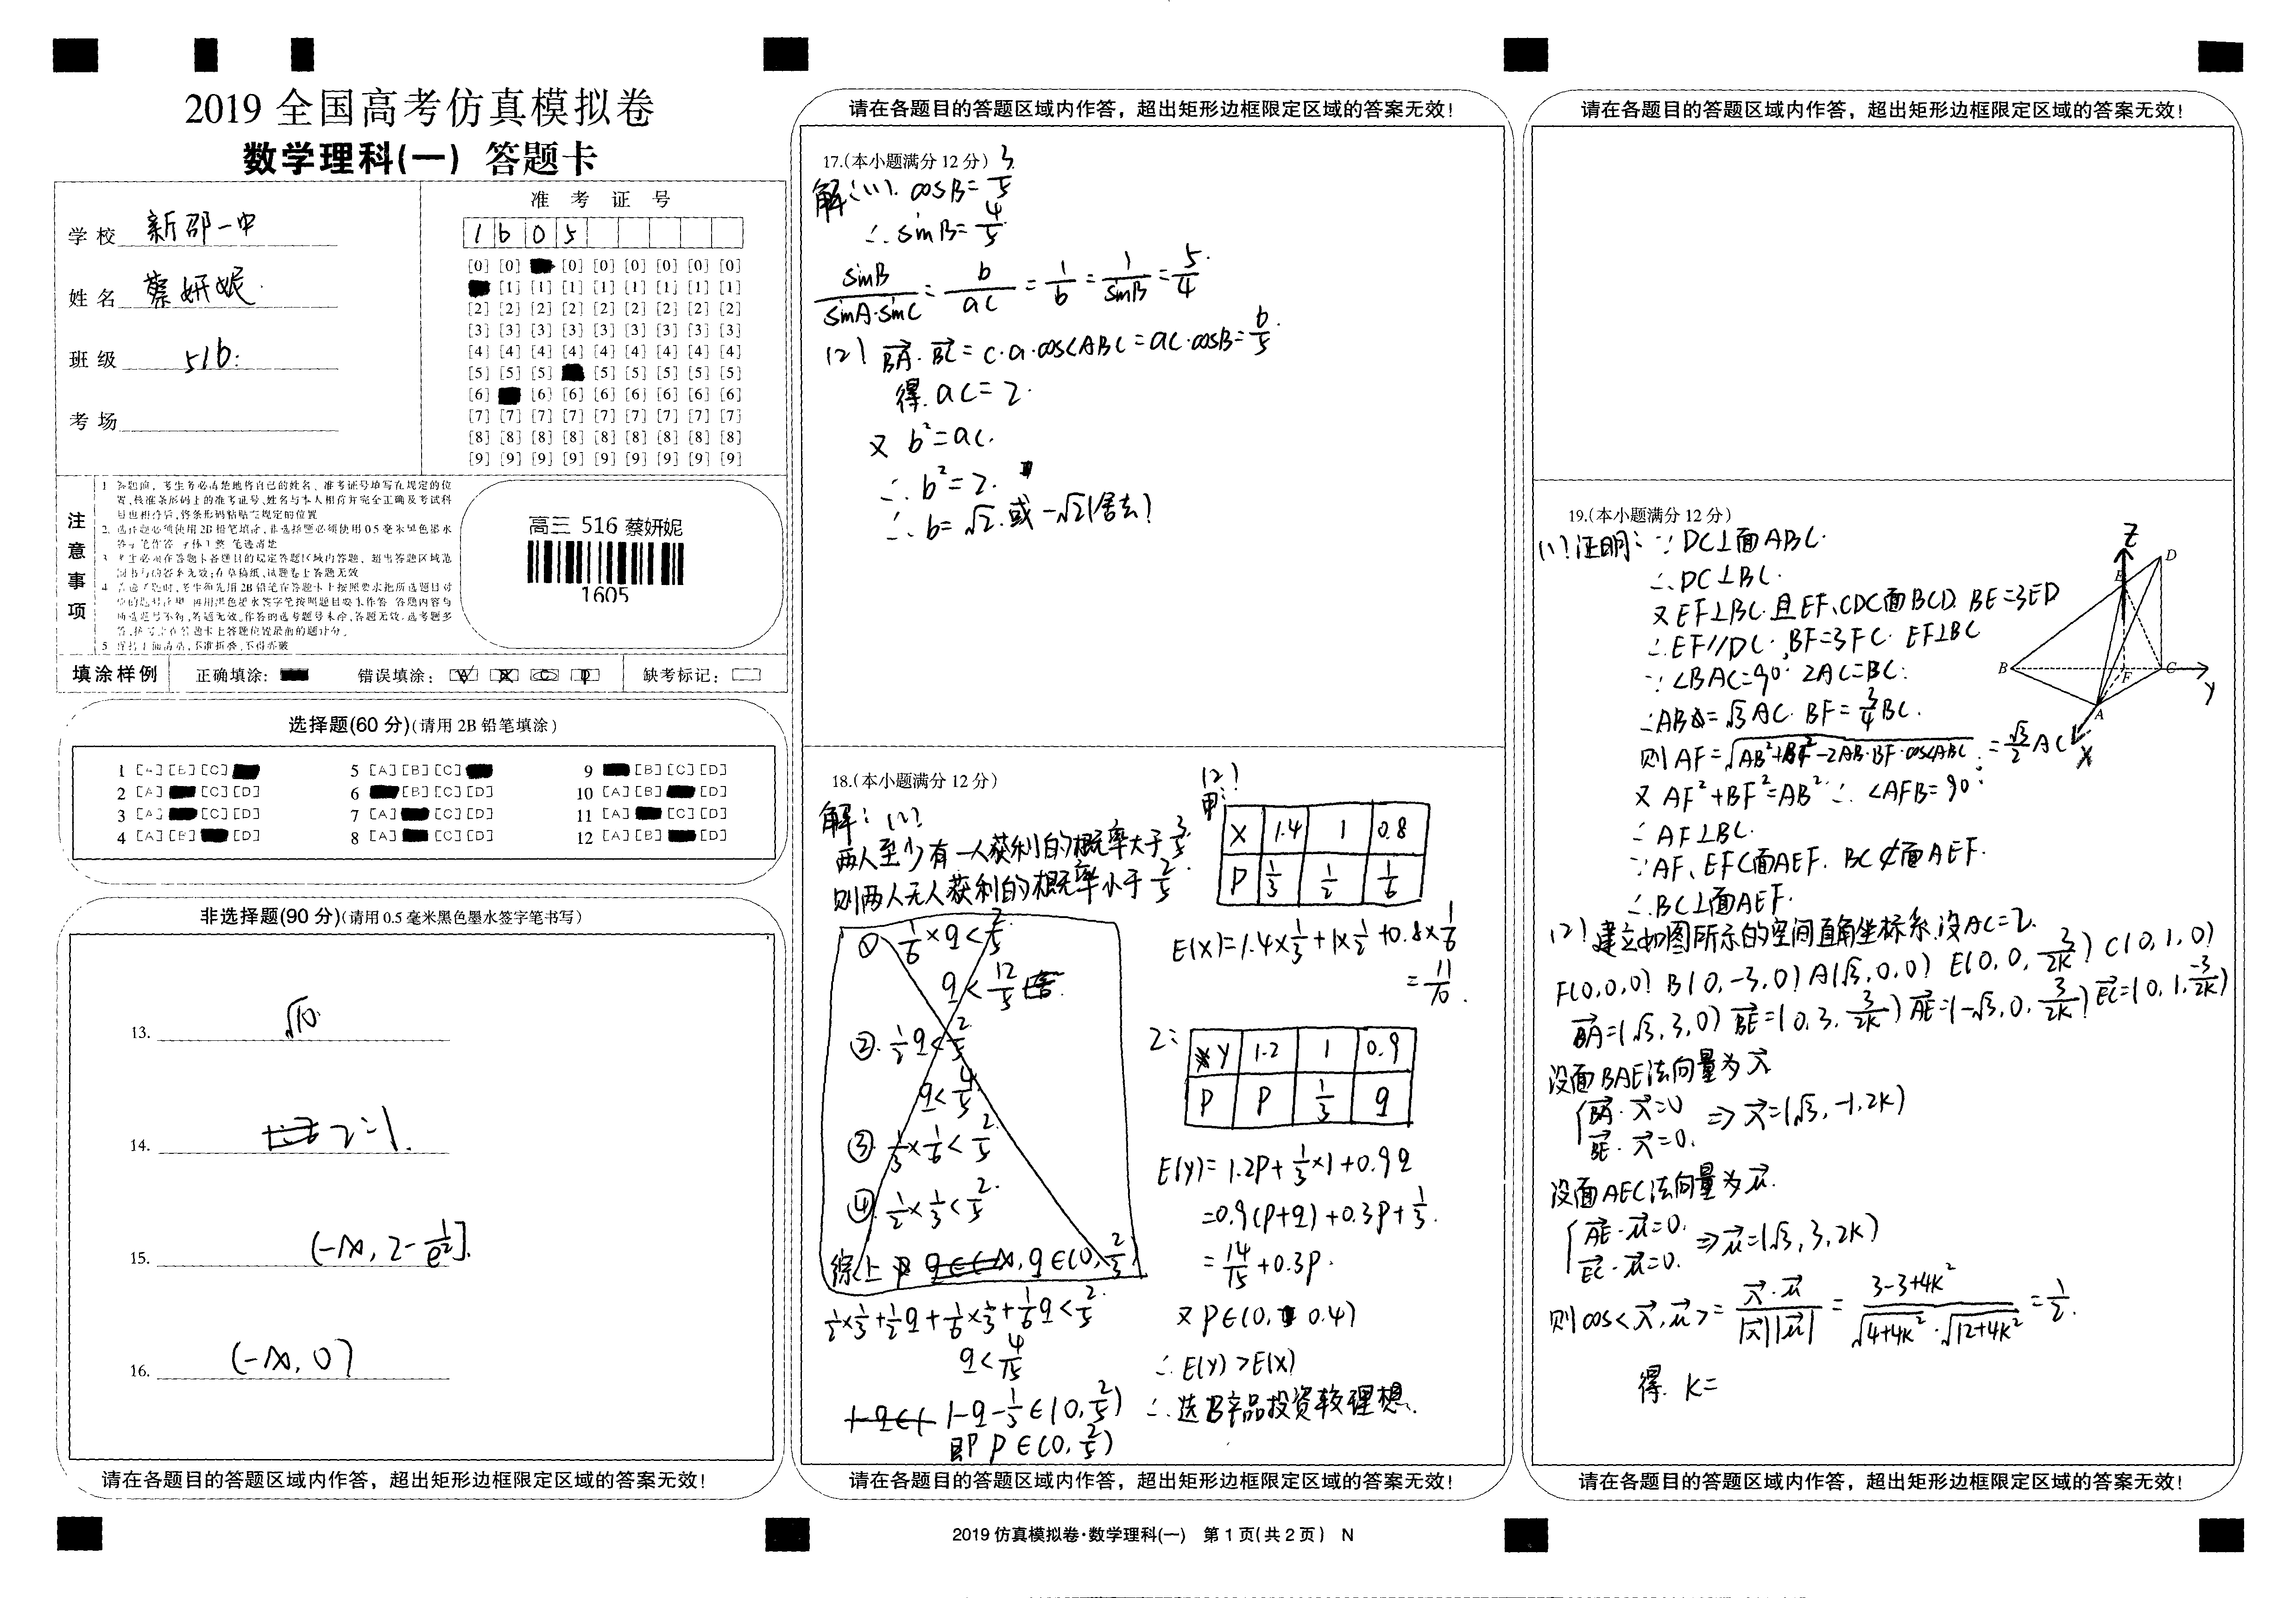 2019 全国高考仿真模拟卷
数学理科(一) 答题卡
学校 新邵一中
姓名 蔡妍妮.
班级 516:
考场
准 考 证 号
1 6 0 5
[0] [0] [0] [0] [0] [0] [0] [0]
[1] [1] [1] [1] [1] [1] [1] [1]
[2] [2] [2] [2] [2] [2] [2] [2] [2]
[3] [3] [3] [3] [3] [3] [3] [3] [3]
[4] [4] [4] [4] [4] [4] [4] [4] [4]
[5] [5] [5] [5] [5] [5] [5] [5]
[6] [6] [6] [6] [6] [6] [6] [6]
[7] [7] [7] [7] [7] [7] [7] [7] [7]
[8] [8] [8] [8] [8] [8] [8] [8] [8]
[9] [9] [9] [9] [9] [9] [9] [9] [9]
注意事项
1 答题前，考生务必清楚地将自己的姓名、准考证号填写在规定的位
置，核准条形码上的准考证号、姓名与本人相符并完全正确及考试科
目也相符后，将条形码粘贴在规定的位置
2. 选择题必须使用2B铅笔填涂，非选择题必须使用0.5毫米黑色墨水
签字笔作答 字体工整 笔迹清楚
3 考生必须在答题卡各题目的规定答题区域内答题，超出答题区域范
围书写的答案无效；在草稿纸、试题卷上答题无效
5 保持卡面清洁，不准折叠、不得弄破
高三 516 蔡妍妮
1605
填涂样例 正确填涂： 错误填涂： 缺考标记：
选择题(60 分)(请用 2B 铅笔填涂)
1 [A] [B] [C] 5 [A] [B] [C] 9 [B] [C] [D]
2 [A] [C] [D] 6 [B] [C] [D] 10 [A] [B] [D]
3 [A] [C] [D] 7 [A] [C] [D] 11 [A] [C] [D]
4 [A] [B] [D] 8 [A] [C] [D] 12 [A] [B] [D]
非选择题(90 分)(请用 0.5 毫米黑色墨水签字笔书写)
13. √10.
14. 2=1.
15. (-∞, 2-1/e²].
16. (-∞, 0)
请在各题目的答题区域内作答，超出矩形边框限定区域的答案无效！
请在各题目的答题区域内作答，超出矩形边框限定区域的答案无效！
17.(本小题满分 12 分)
解:(1). cosB=3/5
∴ sinB=4/5
sinB/(sinA·sinC)=b/ac=1/b=1/sinB=5/4.
(2) BA·BC=c·a·cos∠ABC=ac·cosB=6/5.
得. ac=2.
又 b²=ac.
∴ b²=2.
∴ b=√2.或 -√2(舍去)
18.(本小题满分 12 分)
解: (1)
两人至少有一人获利的概率大于3/5.
则两人无人获利的概率小于2/5.
① 1/6×q<2/5
q<12/5 舍.
②. 1/2q<2/5
q<4/5.
③. 1/3×1/6<2/5.
④. 1/2×1/3<2/5.
综上 q∈(0, 2/3)
1/2×1/3+1/2q+1/6×1/3+1/6q<2/5.
q<4/15
1-q-1/3∈(0, 2/5)
即P P∈(0, 2/5)
(2)
甲:
X 1.4 1 0.8
P 1/3 1/2 1/6
E(X)=1.4×1/3+1×1/2+0.8×1/6
=11/10.
乙:
Y 1.2 1 0.9
P P 1/3 q
E(Y)=1.2P+1/3×1+0.9q
=0.9(P+q)+0.3P+1/3.
=14/15+0.3P.
又 P∈(0, 0.4)
∴ E(Y)>E(X)
∴ 选B产品投资较理想.
请在各题目的答题区域内作答，超出矩形边框限定区域的答案无效！
2019 仿真模拟卷·数学理科(一) 第 1 页(共 2 页) N
请在各题目的答题区域内作答，超出矩形边框限定区域的答案无效！
19.(本小题满分 12 分)
(1)证明: ∵ DC⊥面ABC.
∴ DC⊥BC.
又EF⊥BC.且EF、CD⊂面BCD. BE=3ED
∴ EF//DC. BF=3FC. EF⊥BC
∵ ∠BAC=90° 2AC=BC.
∴AB=√3AC. BF=3/4BC.
则AF=√(AB²+BF²-2AB·BF·cos∠ABC)=√3/2AC
又 AF²+BF²=AB² ∴ ∠AFB=90°
∴ AF⊥BC.
∵AF、EF⊂面AEF. BC⊄面AEF.
∴ BC⊥面AEF.
Z
D
E
B
F
C
Y
A
X
(2) 建立如图所示的空间直角坐标系.设AC=2.
F(0,0,0) B(0,-3,0) A(√3,0,0) E(0,0,3/2K) C(0,1,0)
BA=(√3,3,0) BE=(0,3,3/2K) AE=(-√3,0,3/2K) EC=(0,1,-3/2K)
设面BAE法向量为λ
{BA·λ=0
BE·λ=0. ⇒ λ=(√3,-1,2K)
设面AEC法向量为μ.
{AE·μ=0.
EC·μ=0. ⇒μ=(√3,3,2K)
则cos<λ,μ>=λ·μ/|λ||μ|=(3-3+4K²)/(√(4+4K²)·√(12+4K²))=1/2.
得. K=
请在各题目的答题区域内作答，超出矩形边框限定区域的答案无效！